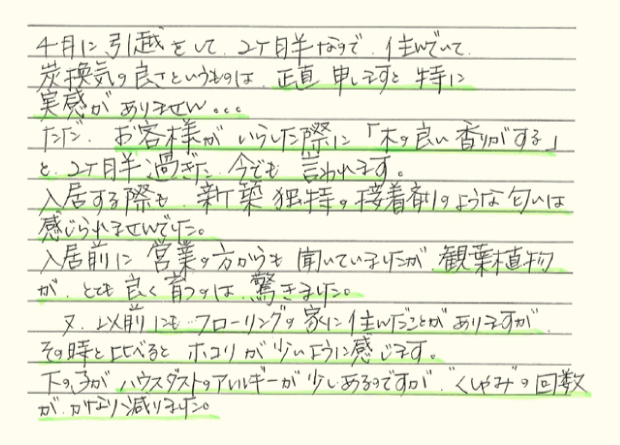 4月に引越をして、2ケ月半なので、住んでいて、
炭換気の良さというものは、正直申しますと特に
実感がありません。。。
ただ、お客様がいらした際に「木の良い香りがする」
と、2ケ月半過ぎた、今でも言われます。
入居する際も、新築独特の接着剤のような匂いは
感じられませんでした。
入居前に営業の方からも聞いていましたが、観葉植物
が、とても良く育つのは、驚きました。
又、以前にもフローリングの家に住んだことがありますが、
その時と比べるとホコリが少いように感じます。
下の子がハウスダストのアレルギーが少しあるのですが、"くしゃみ"の回数
が、かなり減りました。